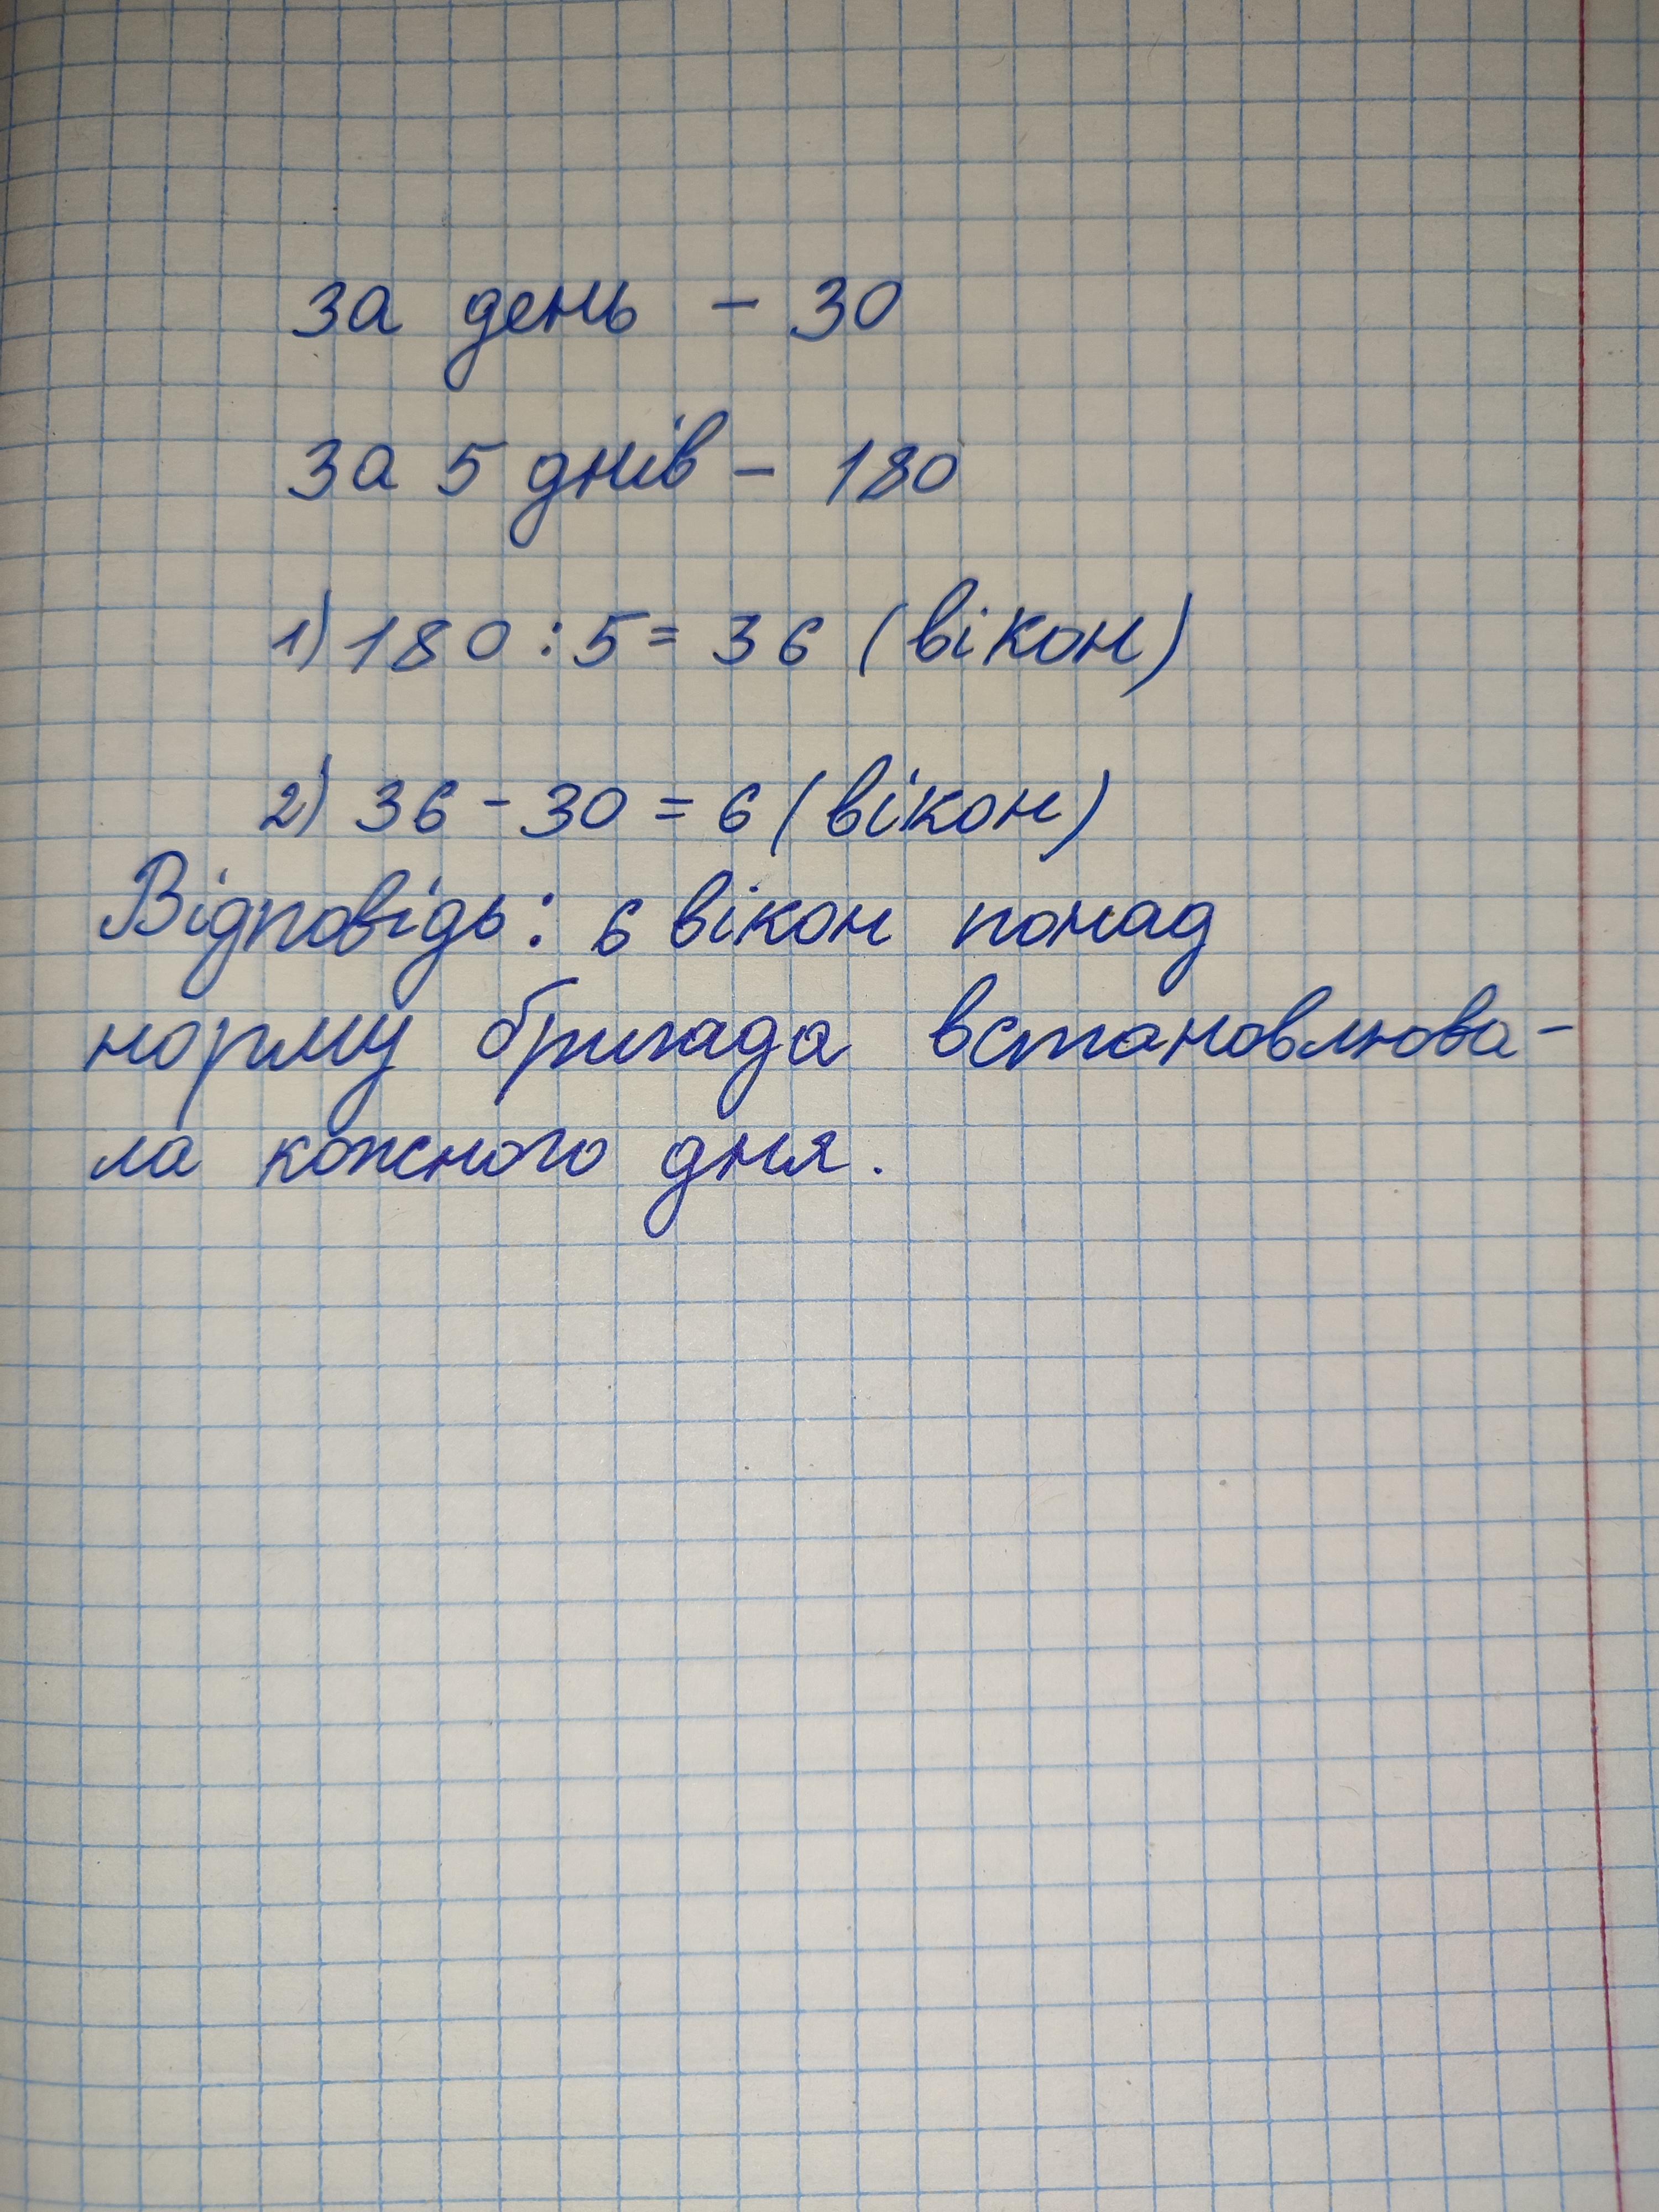 за день - 30
за 5 днів - 180
1) 180 : 5 = 36 (вікон)
2) 36 - 30 = 6 (вікон)
Відповідь: 6 вікон понад
норму бригада встановлюва-
ла кожного дня.